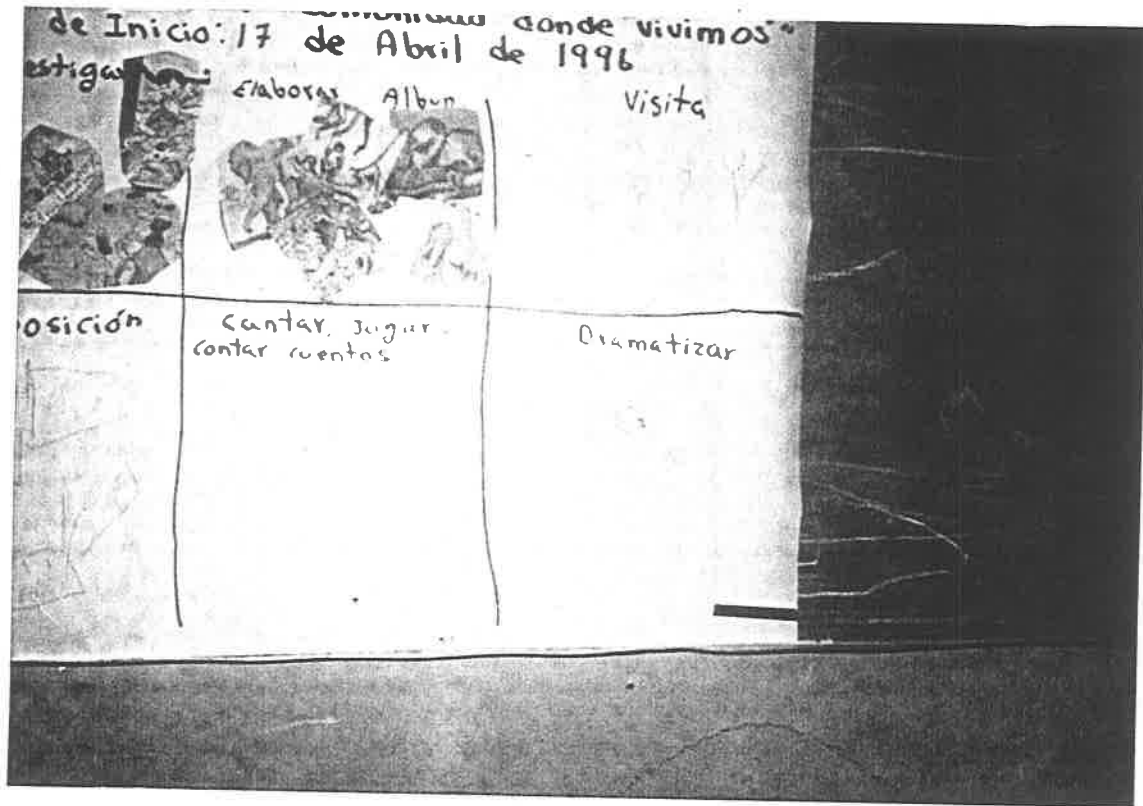 comunidad donde vivimos"
de Inicio: 17 de Abril de 1996
estigar
Elaborar Album
Visita
osición
Cantar, Jugar.
contar cuentos
Dramatizar